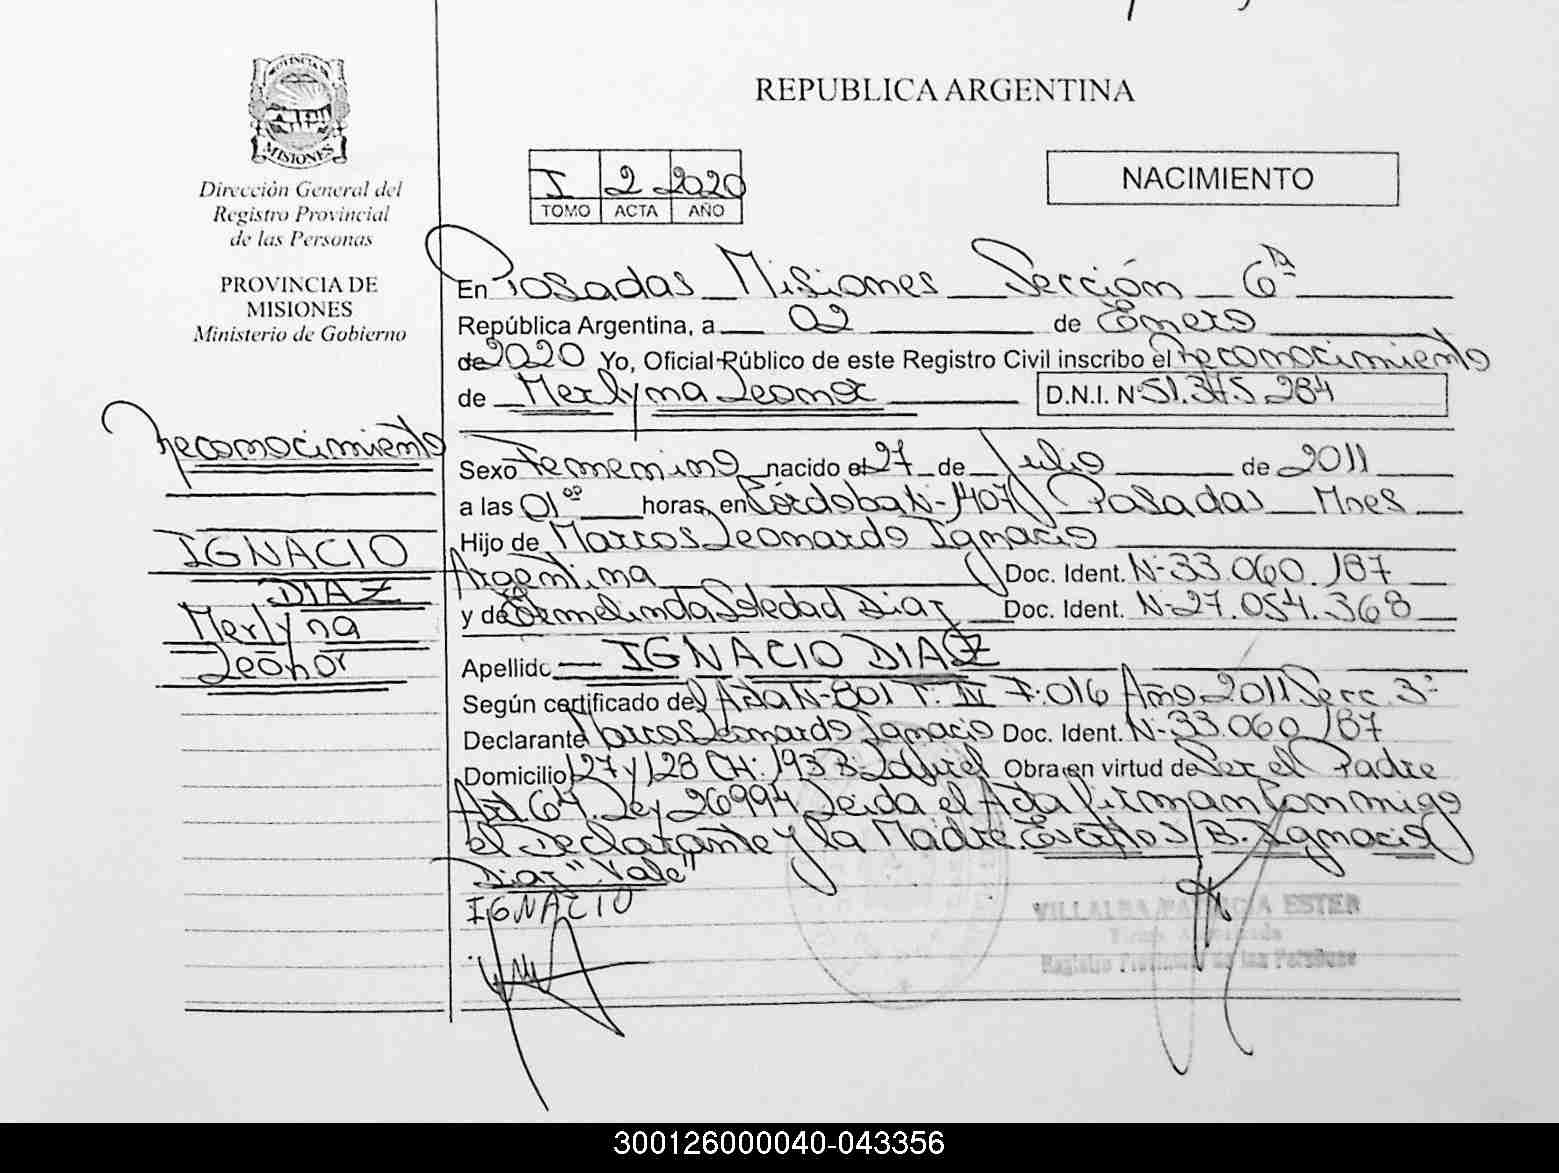 PROVINCIA DE
MISIONES
Dirección General del
Registro Provincial
de las Personas
PROVINCIA DE
MISIONES
Ministerio de Gobierno
Reconocimiento
IGNACIO
DIAZ
Merlyna
Leonor
REPUBLICA ARGENTINA
I 2 2020
TOMO ACTA AÑO
NACIMIENTO
En Posadas Misiones Sección 6ª
República Argentina, a 02 de Enero
de 2020 Yo, Oficial Público de este Registro Civil inscribo el Reconocimiento
de Merlyna Leonor D.N.I. Nº 51.345.284
Sexo Femenino nacido el 27 de Julio de 2011
a las 01⁰⁰ horas, en Córdoba N- 1407 Posadas Mnes
Hijo de Marcos Leonardo Ignacio
Argentina Doc. Ident. N-33.060.187
y de Ermelinda Soledad Diaz Doc. Ident. N-27.054.368
Apellido IGNACIO DIAZ
Según certificado del Acta N-801 T. IV F. 016 Año 2011 Secc. 3ª
Declarante Marcos Leonardo Ignacio Doc. Ident. N-33.060.187
Domicilio 127 y 128 CH: 193 B- Obra en virtud de Ser el Padre
Art. 64. Ley 26994 Leida el Acta firman Conmigo
el Declarante y la Madre. Escritos S/B. Ignacio
Diaz "Vale"
IGNACIO
VILLALBA PATRICIA ESTER
Registro Provincial de las Personas
300126000040-043356